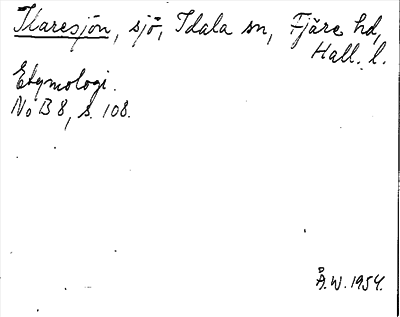 Ilaresjön, sjö, Idala sn, Fjäre hd,
Hall. l.
Etymologi.
No B 8, s. 108.
Å.W. 1954.